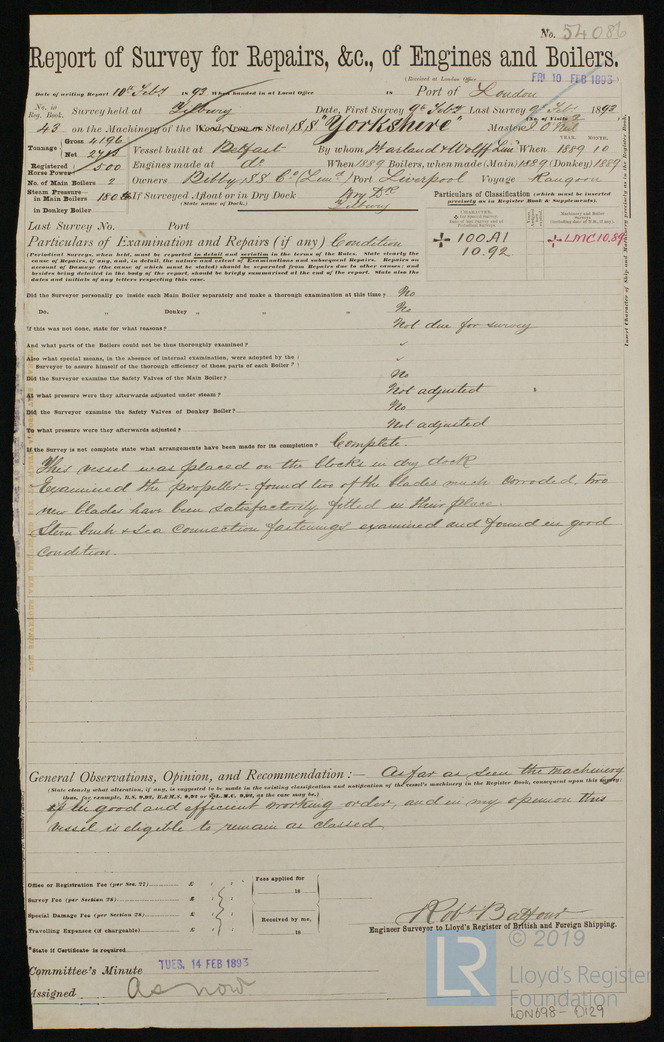 No. 54086
Report of Survey for Repairs, &c., of Engines and Boilers.
(Received at London Office FRI 10 FEB 1893)
Date of writing Report 10th Feby 1893 When handed in at Local Office 18 Port of London
No. in Reg. Book. Survey held at Tilbury Date, First Survey 9th Feby Last Survey 9th Feby 1893
(No. of Visits 2)
43 on the Machinery of the Wood, Iron or Steel S.S "Yorkshire" Master
Tonnage Gross 4196 Net 2715 Vessel built at Belfast By whom Harland & Wolff Limd When 1889 10
YEAR. MONTH.
Registered Horse Power 500 Engines made at do When 1889 Boilers, when made (Main) 1889 (Donkey) 1889
No. of Main Boilers 2 Owners Bibby S.S. Co (Limd) Port Liverpool Voyage Rangoon
Steam Pressure in Main Boilers 180 lb If Surveyed Afloat or in Dry Dock Dry Dk Tilbury
(State name of Dock.)
in Donkey Boiler
Particulars of Classification (which must be inserted precisely as in Register Book & Supplements).
Last Survey No. Port
✠ 100A1
10.92
✠ LMC 10.89
Insert Character of Ship and Machinery precisely as in the Register Book.
Particulars of Examination and Repairs (if any) Condition
(Periodical Surveys, when held, must be reported in detail and seriatim in the terms of the Rules. State clearly the
cause of Repairs, if any, and, in detail, the nature and extent of Examinations and subsequent Repairs. Repairs on
account of Damage (the cause of which must be stated) should be separated from Repairs due to other causes; and
besides being detailed in the body of the report, should be briefly summarised at the end of the report. State also the
dates and initials of any letters respecting this case.
Did the Surveyor personally go inside each Main Boiler separately and make a thorough examination at this time? No
Do. " Donkey " " " No
If this was not done, state for what reasons? Not due for survey
And what parts of the Boilers could not be thus thoroughly examined? ✓
Also what special means, in the absence of internal examination, were adopted by the
Surveyor to assure himself of the thorough efficiency of those parts of each Boiler? ✓
Did the Surveyor examine the Safety Valves of the Main Boiler? No
At what pressure were they afterwards adjusted under steam? Not adjusted
Did the Surveyor examine the Safety Valves of Donkey Boiler? No
To what pressure were they afterwards adjusted? Not adjusted
If the Survey is not complete state what arrangements have been made for its completion? Complete.
This vessel was placed on the blocks in dry dock
Examined the propeller - found two of the blades much corroded, two
new blades have been satisfactorily fitted in their place.
Stern bush & sea connection fastenings examined and found in good
condition.
General Observations, Opinion, and Recommendation:— As far as seen the machinery
(State clearly what alteration, if any, is suggested to be made in the existing classification and notification of the vessel's machinery in the Register Book, consequent upon this survey:
thus, for example, B.S. 9,92, B.&M.S. 9,92 or ✠L.M.C. 9,92, as the case may be.)
is in good and efficient working order, and in my openion this
vessel is eligible to remain as classed
Office or Registration Fee (per Sec. 27) £ : :
Fees applied for
18
Survey Fee (per Section 28) £ : :
Special Damage Fee (per Section 28) £ : :
Received by me,
18
Travelling Expenses (if chargeable) £ : :
Robt Balfour
Engineer Surveyor to Lloyd's Register of British and Foreign Shipping.
*State if Certificate is required
Committee's Minute TUES. 14 FEB 1893
Assigned as now
LR
© 2019
Lloyd's Register
Foundation
LON698-0129